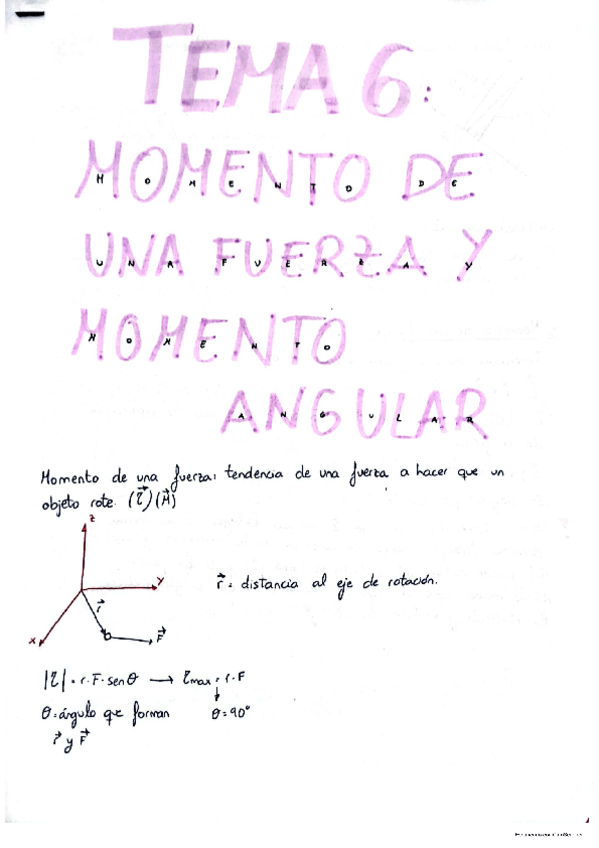 TEMA 6:
MOMENTO DE
UNA FUERZA Y
MOMENTO
ANGULAR
Momento de una fuerza: tendencia de una fuerza a hacer que un
objeto rote. (τ⃗) (M⃗)
z
y
r⃗ = distancia al eje de rotación.
r⃗
x
F⃗
|τ| = r·F·senθ → τmax = r·F
↓
θ = ángulo que forman θ = 90°
r⃗ y F⃗